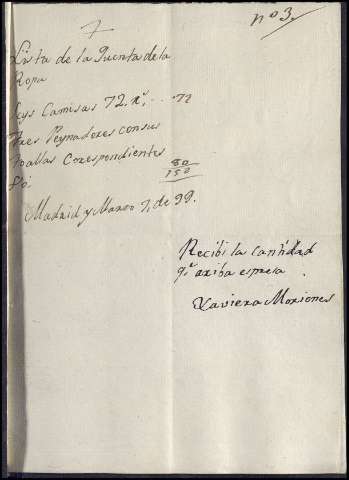 nº 3.
+
Lista de la Quenta de la
Ropa
Seys Camisas 72 rs. .. 72
Tres Peynadores con sus
Toallas Correspondientes
80
150
Madrid y Marzo 7, de 99.
Recibi la cantidad
qe. ariba espresa
Xaviera Moriones